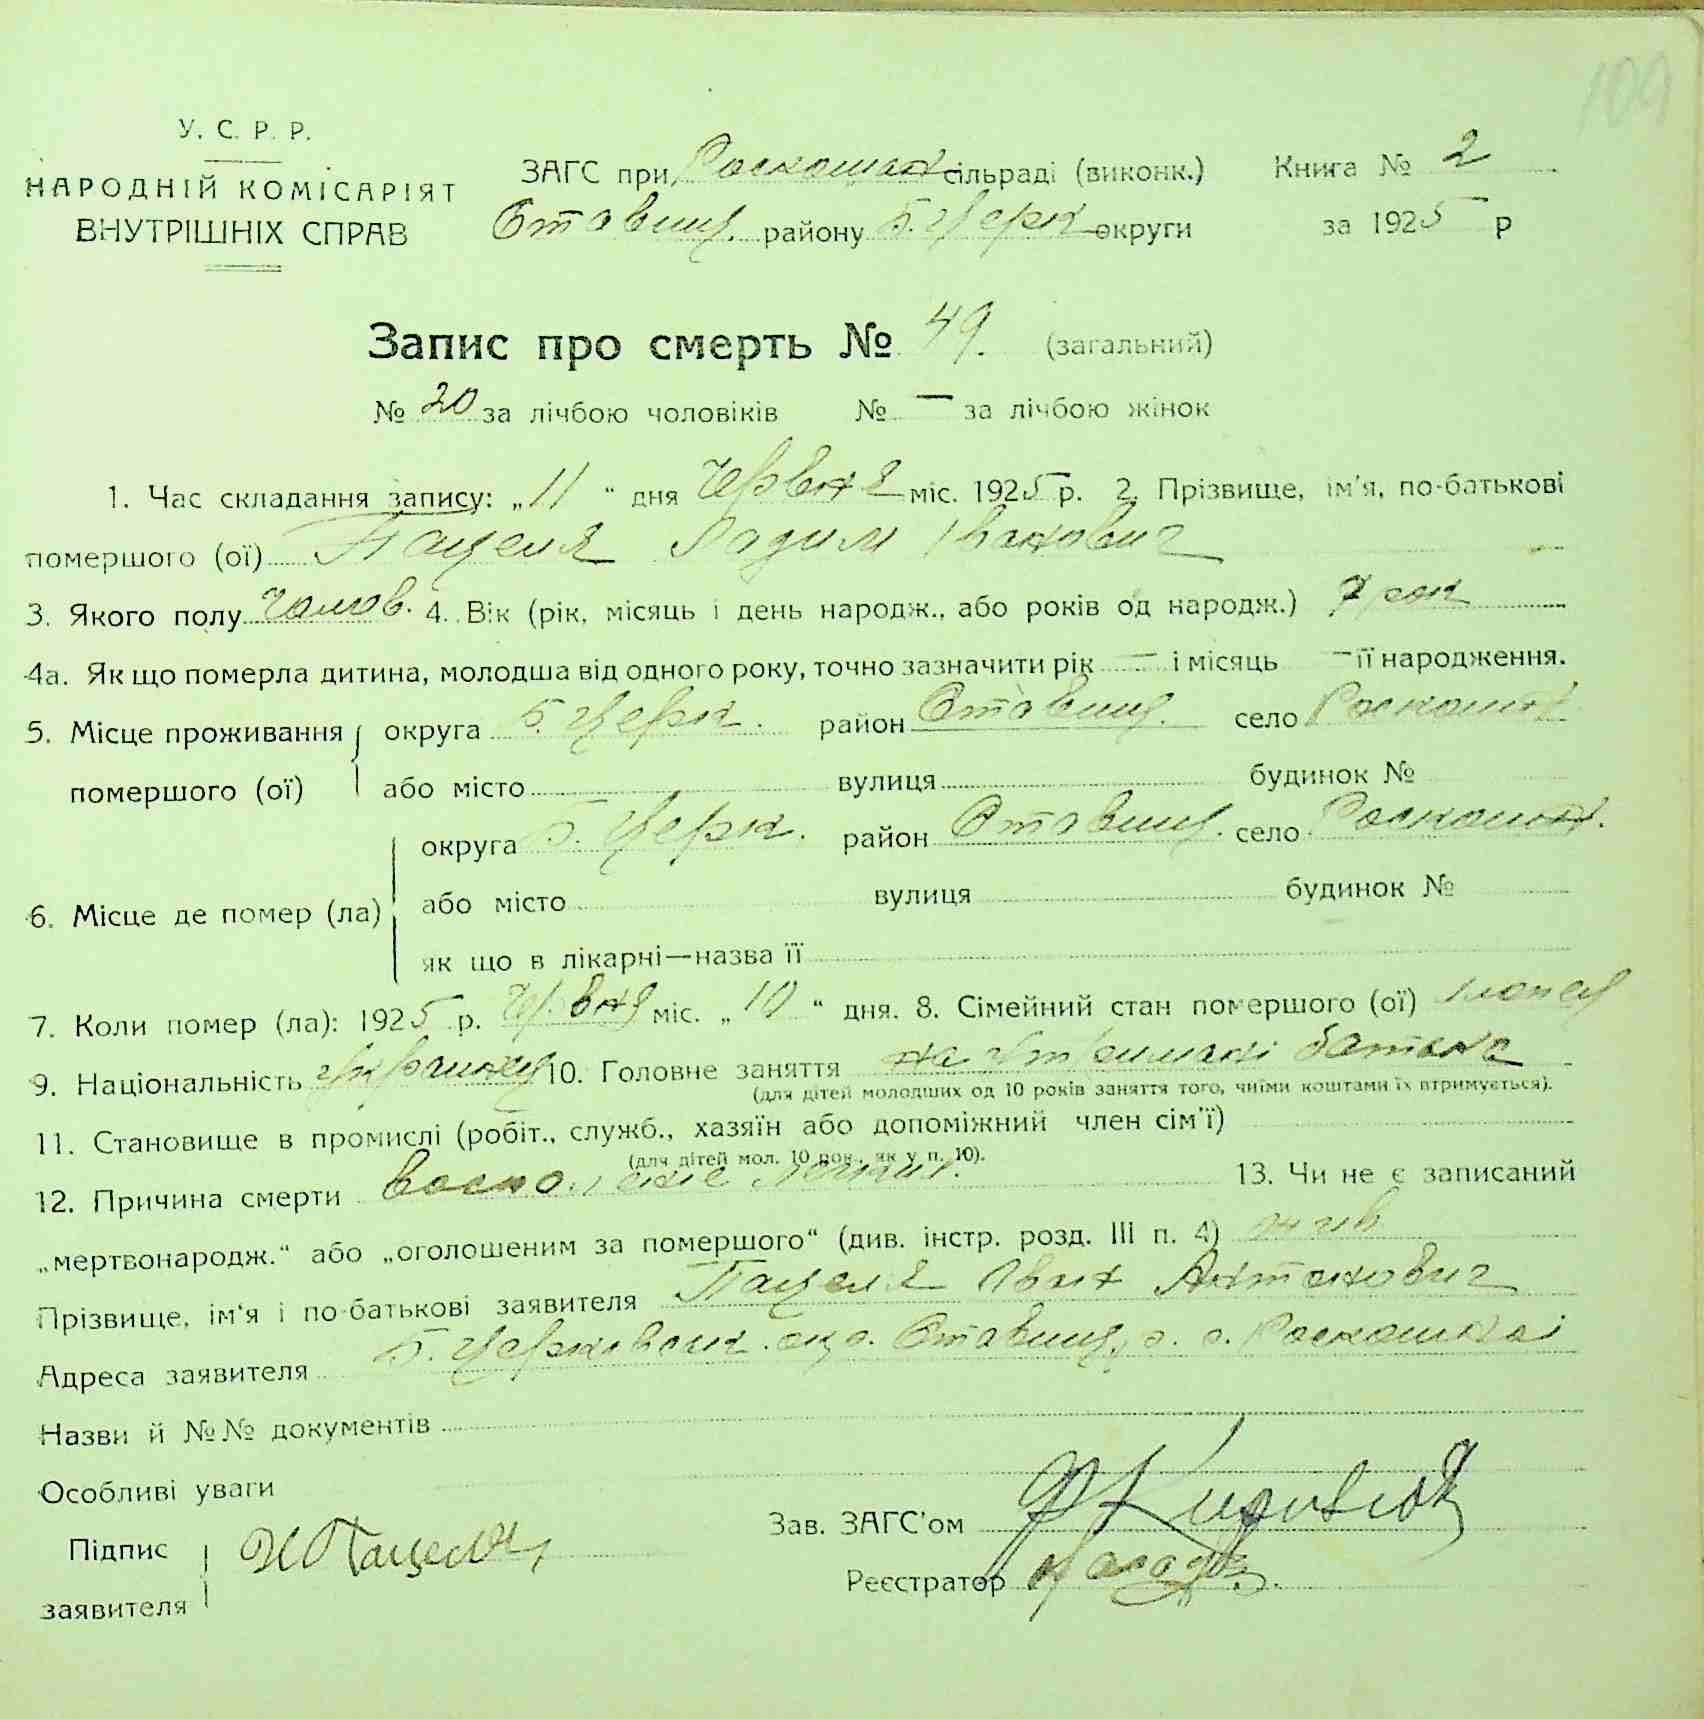 109
У. С. Р. Р.
НАРОДНІЙ КОМІСАРІЯТ
ВНУТРІШНІХ СПРАВ
ЗАГС при Роскошан сільраді (виконк.)
Ставищ. району Б. Церк округи
Книга № 2
за 1925 р
Запис про смерть № 49. (загальний)
№ 20 за лічбою чоловіків № — за лічбою жінок
1. Час складання запису: „11“ дня Червня міс. 1925 р. 2. Прізвище, ім'я, по-батькові
помершого (ої) Пацеля Іванович
3. Якого полу чолов. 4. Вік (рік, місяць і день народж., або років од народж.) 7 рок
4а. Як що померла дитина, молодша від одного року, точно зазначити рік — і місяць — її народження.
5. Місце проживання помершого (ої) округа Б. Церк. район Ставищ. село Роскошн
або місто вулиця будинок №
6. Місце де помер (ла) округа Б. Церк. район Ставищ. село Роскошн.
або місто вулиця будинок №
як що в лікарні—назва її
7. Коли помер (ла): 1925 р. Червня міс. „10“ дня. 8. Сімейний стан помершого (ої)
9. Національність Українец 10. Головне заняття на утримані батька
(для дітей молодших од 10 років заняття того, чиїми коштами їх втримується).
11. Становище в промислі (робіт., служб., хазяїн або допоміжний член сім'ї)
(для дітей мол. 10 рок., як у п. 10).
12. Причина смерти 13. Чи не є записаний
„мертвонародж.“ або „оголошеним за помершого“ (див. інстр. розд. III п. 4)
Прізвище, ім'я і по-батькові заявителя Пацеля Іван Антонович
Адреса заявителя Б. Церківськ. окр. Ставищ. р. с. Роскошна
Назви й №№ документів
Особливі уваги
Підпис заявителя И Пацеля
Зав. ЗАГС'ом
Реєстратор